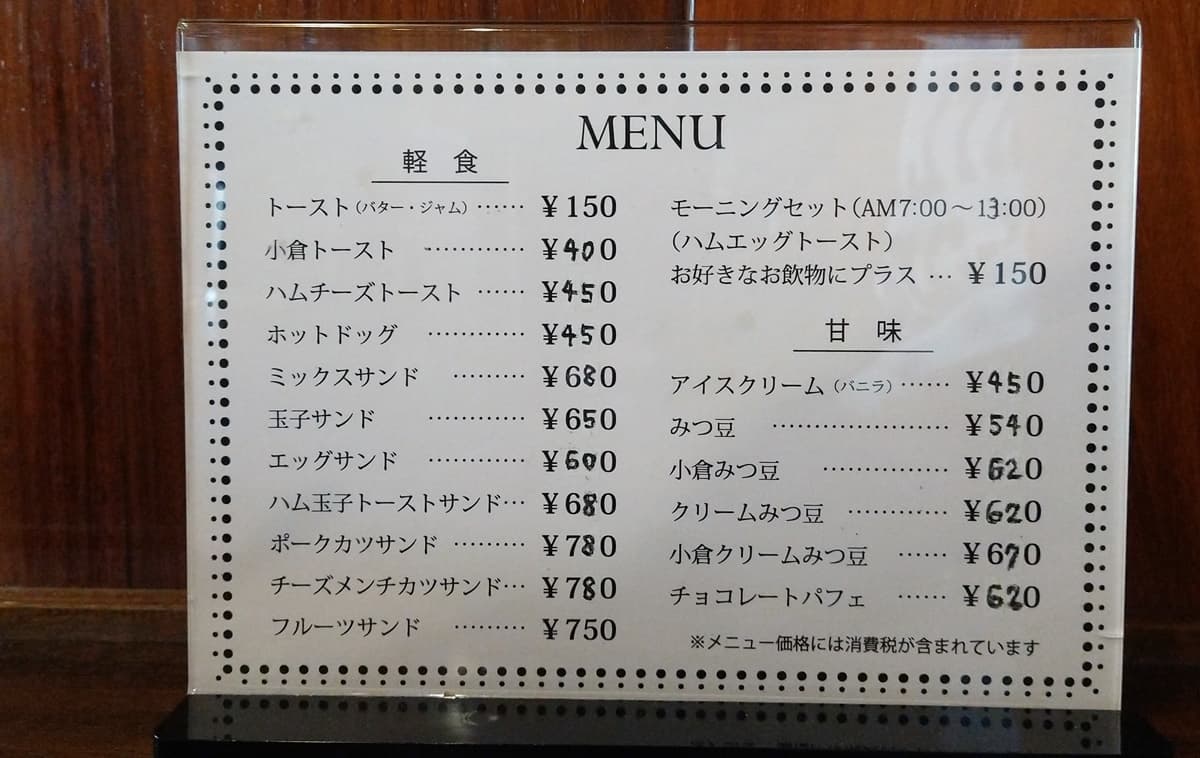 MENU
軽 食
トースト(バター・ジャム)…… ¥150
小倉トースト ………… ¥400
ハムチーズトースト …… ¥450
ホットドッグ ………… ¥450
ミックスサンド ……… ¥680
玉子サンド ………… ¥650
エッグサンド ………… ¥600
ハム玉子トーストサンド… ¥680
ポークカツサンド ……… ¥780
チーズメンチカツサンド… ¥780
フルーツサンド ……… ¥750
モーニングセット(AM7:00～13:00)
(ハムエッグトースト)
お好きなお飲物にプラス … ¥150
甘 味
アイスクリーム(バニラ)…… ¥450
みつ豆 ………………… ¥540
小倉みつ豆 …………… ¥620
クリームみつ豆 ………… ¥620
小倉クリームみつ豆 …… ¥670
チョコレートパフェ …… ¥620
※メニュー価格には消費税が含まれています